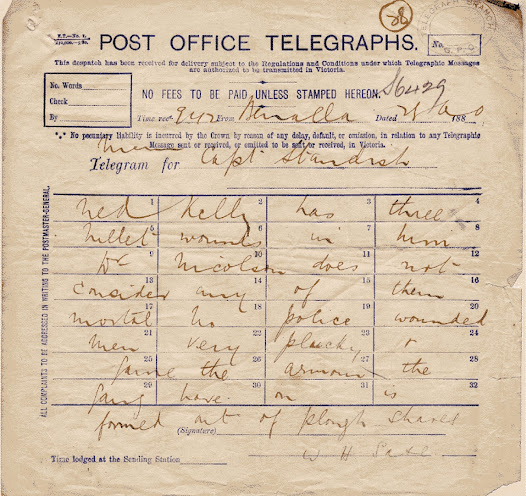 28
P.T.—No. 1.
TELEGRAPH BRANCH
G.P.O.
POST OFFICE TELEGRAPHS.
No.
This despatch has been received for delivery subject to the Regulations and Conditions under which Telegraphic Messages
are authorized to be transmitted in Victoria.
No. Words
Check
By
NO FEES TO BE PAID UNLESS STAMPED HEREON.
S6429
Time rec. From Benalla Dated 188
*** No pecuniary liability is incurred by the Crown by reason of any delay, default, or omission, in relation to any Telegraphic
Message sent or received, or omitted to be sent or received, in Victoria.
Telegram for Capt Standish
ALL COMPLAINTS TO BE ADDRESSED IN WRITING TO THE POSTMASTER-GENERAL.
1 2 3 4
Ned Kelly has three
5 6 7 8
bullet wounds in him
9 10 11 12
Dr Nicolson does not
13 14 15 16
consider any of them
17 18 19 20
mortal no police wounded
21 22 23 24
men very plucky &
25 26 27 28
game the armour the
29 30 31 32
gang have on is
formed out of plough shares
(Signature)
W H Sale
Time lodged at the Sending Station